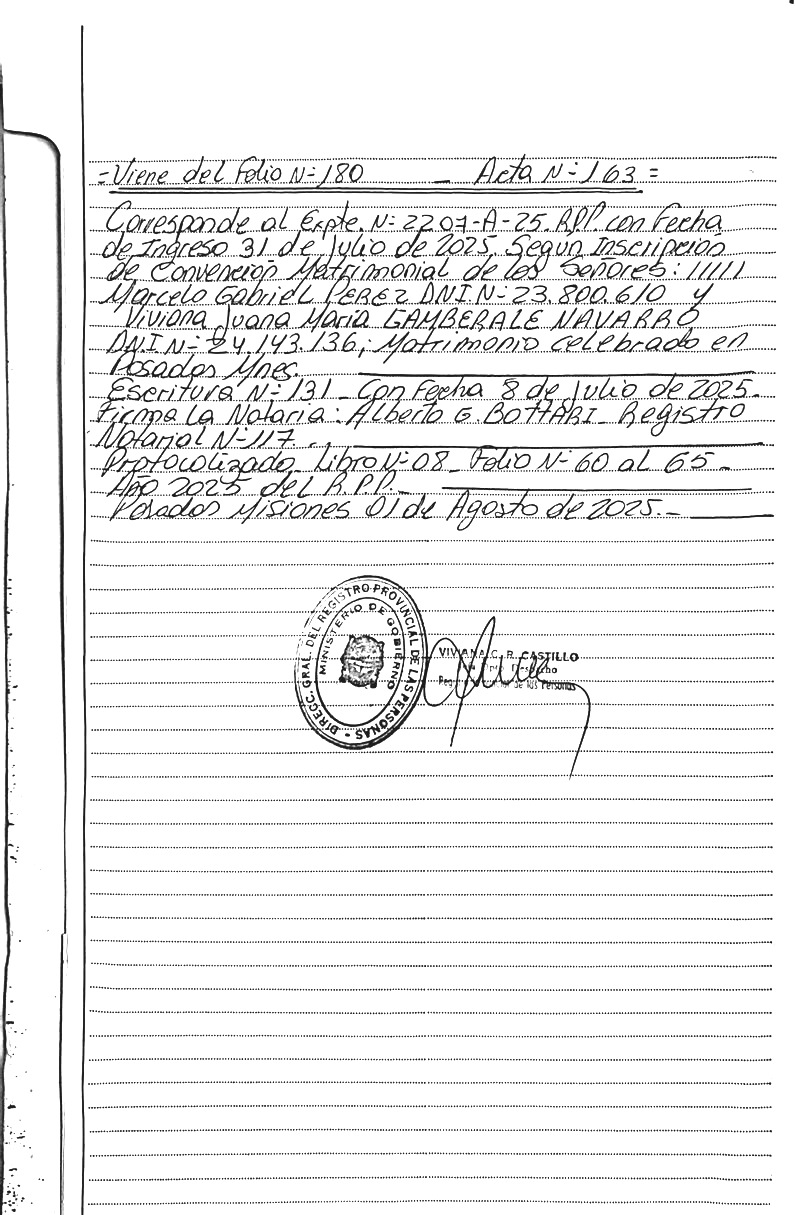 = Viene del Folio N-180 _ Acta N-163 =
Corresponde al Expte. N- 2207-A-25. RPP. con Fecha
de Ingreso 31 de Julio de 2025. Segun Inscripción
de Convención Matrimonial de los Señores: /////
Marcelo Gabriel PEREZ DNI N- 23.800.610 y
Viviana Juana Maria GAMBERALE NAVARRO
DNI N- 24.143.136; Matrimonio celebrado en
Posadas Mnes.
Escritura N- 131 _ Con Fecha 8 de Julio de 2025.
Firma La Notaria: Alberto G. BOTTARI _ Registro
Notarial N-117.
Protocolizado _ Libro N-08 _ Folio N- 60 al 65 _
Año 2025 del R.P.P. _
Posadas Misiones 01 de Agosto de 2025. _
DIRECC. GRAL. DEL REGISTRO PROVINCIAL DE LAS PERSONAS
MINISTERIO DE GOBIERNO
VIVIANA C. R. CASTILLO
Despacho
de las Personas